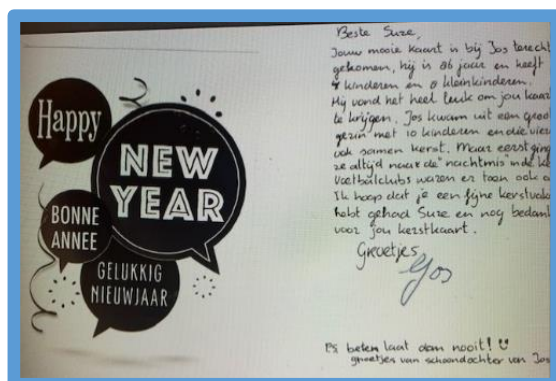 Happy
NEW
YEAR
BONNE
ANNEE
GELUKKIG
NIEUWJAAR
Beste Suze,
Jouw mooie kaart is bij Jos terecht
gekomen, hij is 86 jaar en heeft
4 kinderen en 8 kleinkinderen.
Hij vond het heel leuk om jou kaar
te krijgen. Jos kwam uit een groo
gezin met 10 kinderen en die vier
ook samen kerst. Maar eerst ging
ze altijd naar de "nachtmis" in de
Voetbalclubs waren er toen ook
Ik hoop dat je een fijne kerstvaka
hebt gehad Suze en nog bedan
voor jou kerstkaart.
Groetjes
Jos
PS beter laat dan nooit!
groetjes van schoondochter van Jos